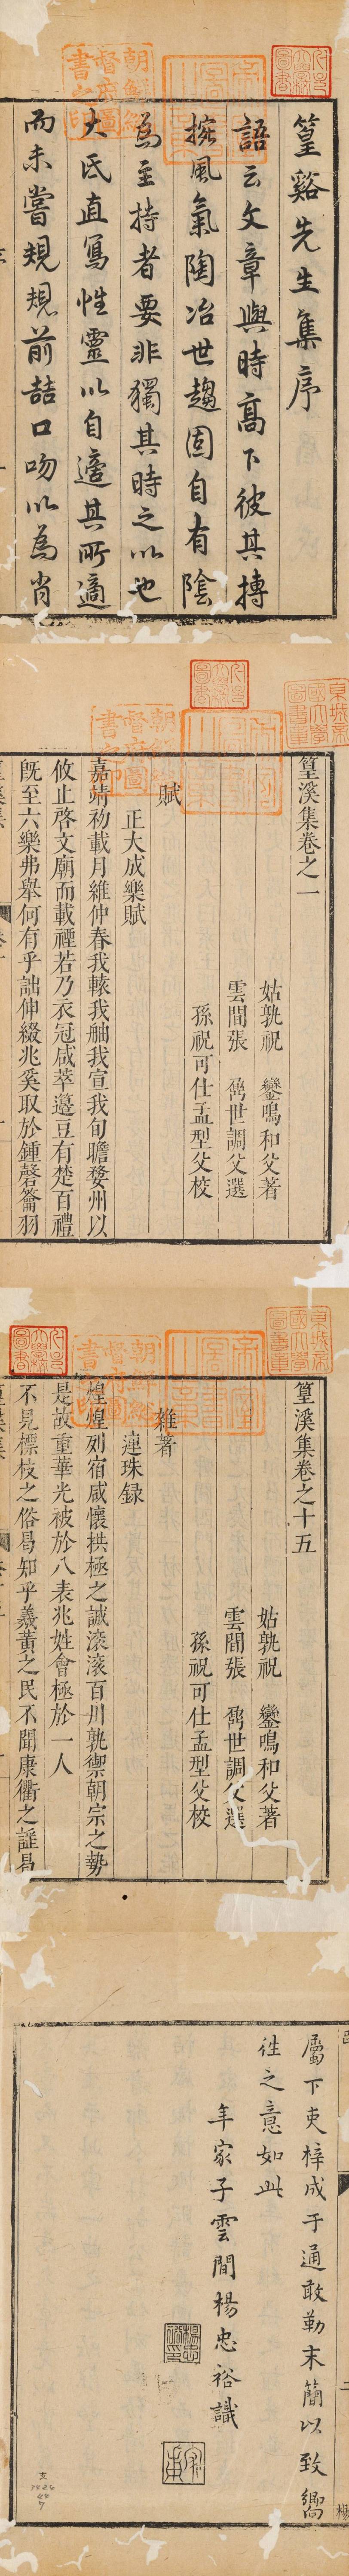 篁谿先生集序
語云文章與時高下彼其摶
捥風氣陶冶世趨固自有陰
為主持者要非獨其時之以也
大氐直寫性靈以自適其所適
而未嘗規規前喆口吻以為肖
篁溪集卷之一
姑孰祝　鑾鳴和父著
雲間張　世調父選
孫祝可仕孟型父校
賦
正大成樂賦
嘉靖初載月維仲春我轅我舳我宣我旬瞻婺州以
攸止啓文廟而載禋若乃衣冠咸萃籩豆有楚百禮
旣至六樂弗舉何有乎詘伸綴兆奚取於鍾磬籥羽
篁溪集卷之十五
姑孰祝　鑾鳴和父著
雲間張　世調父選
孫祝可仕孟型父校
雜著
連珠録
煌煌列宿咸懷拱極之誠滚滚百川孰禦朝宗之勢
是故重華光被於八表兆姓會極於一人
不見標枝之俗曷知乎羲黃之民不聞康衢之謡曷
屬下吏梓成于通敢勒末簡以致嚮
徃之意如此
年家子雲間楊忠裕識
朝鮮總督府圖書之印
京城帝國大學圖書章